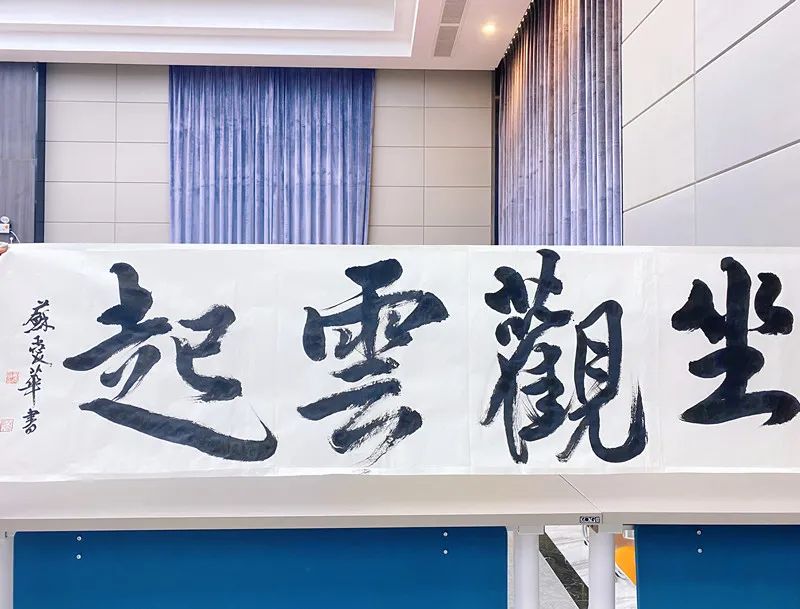 坐觀雲起
蘇愛華書